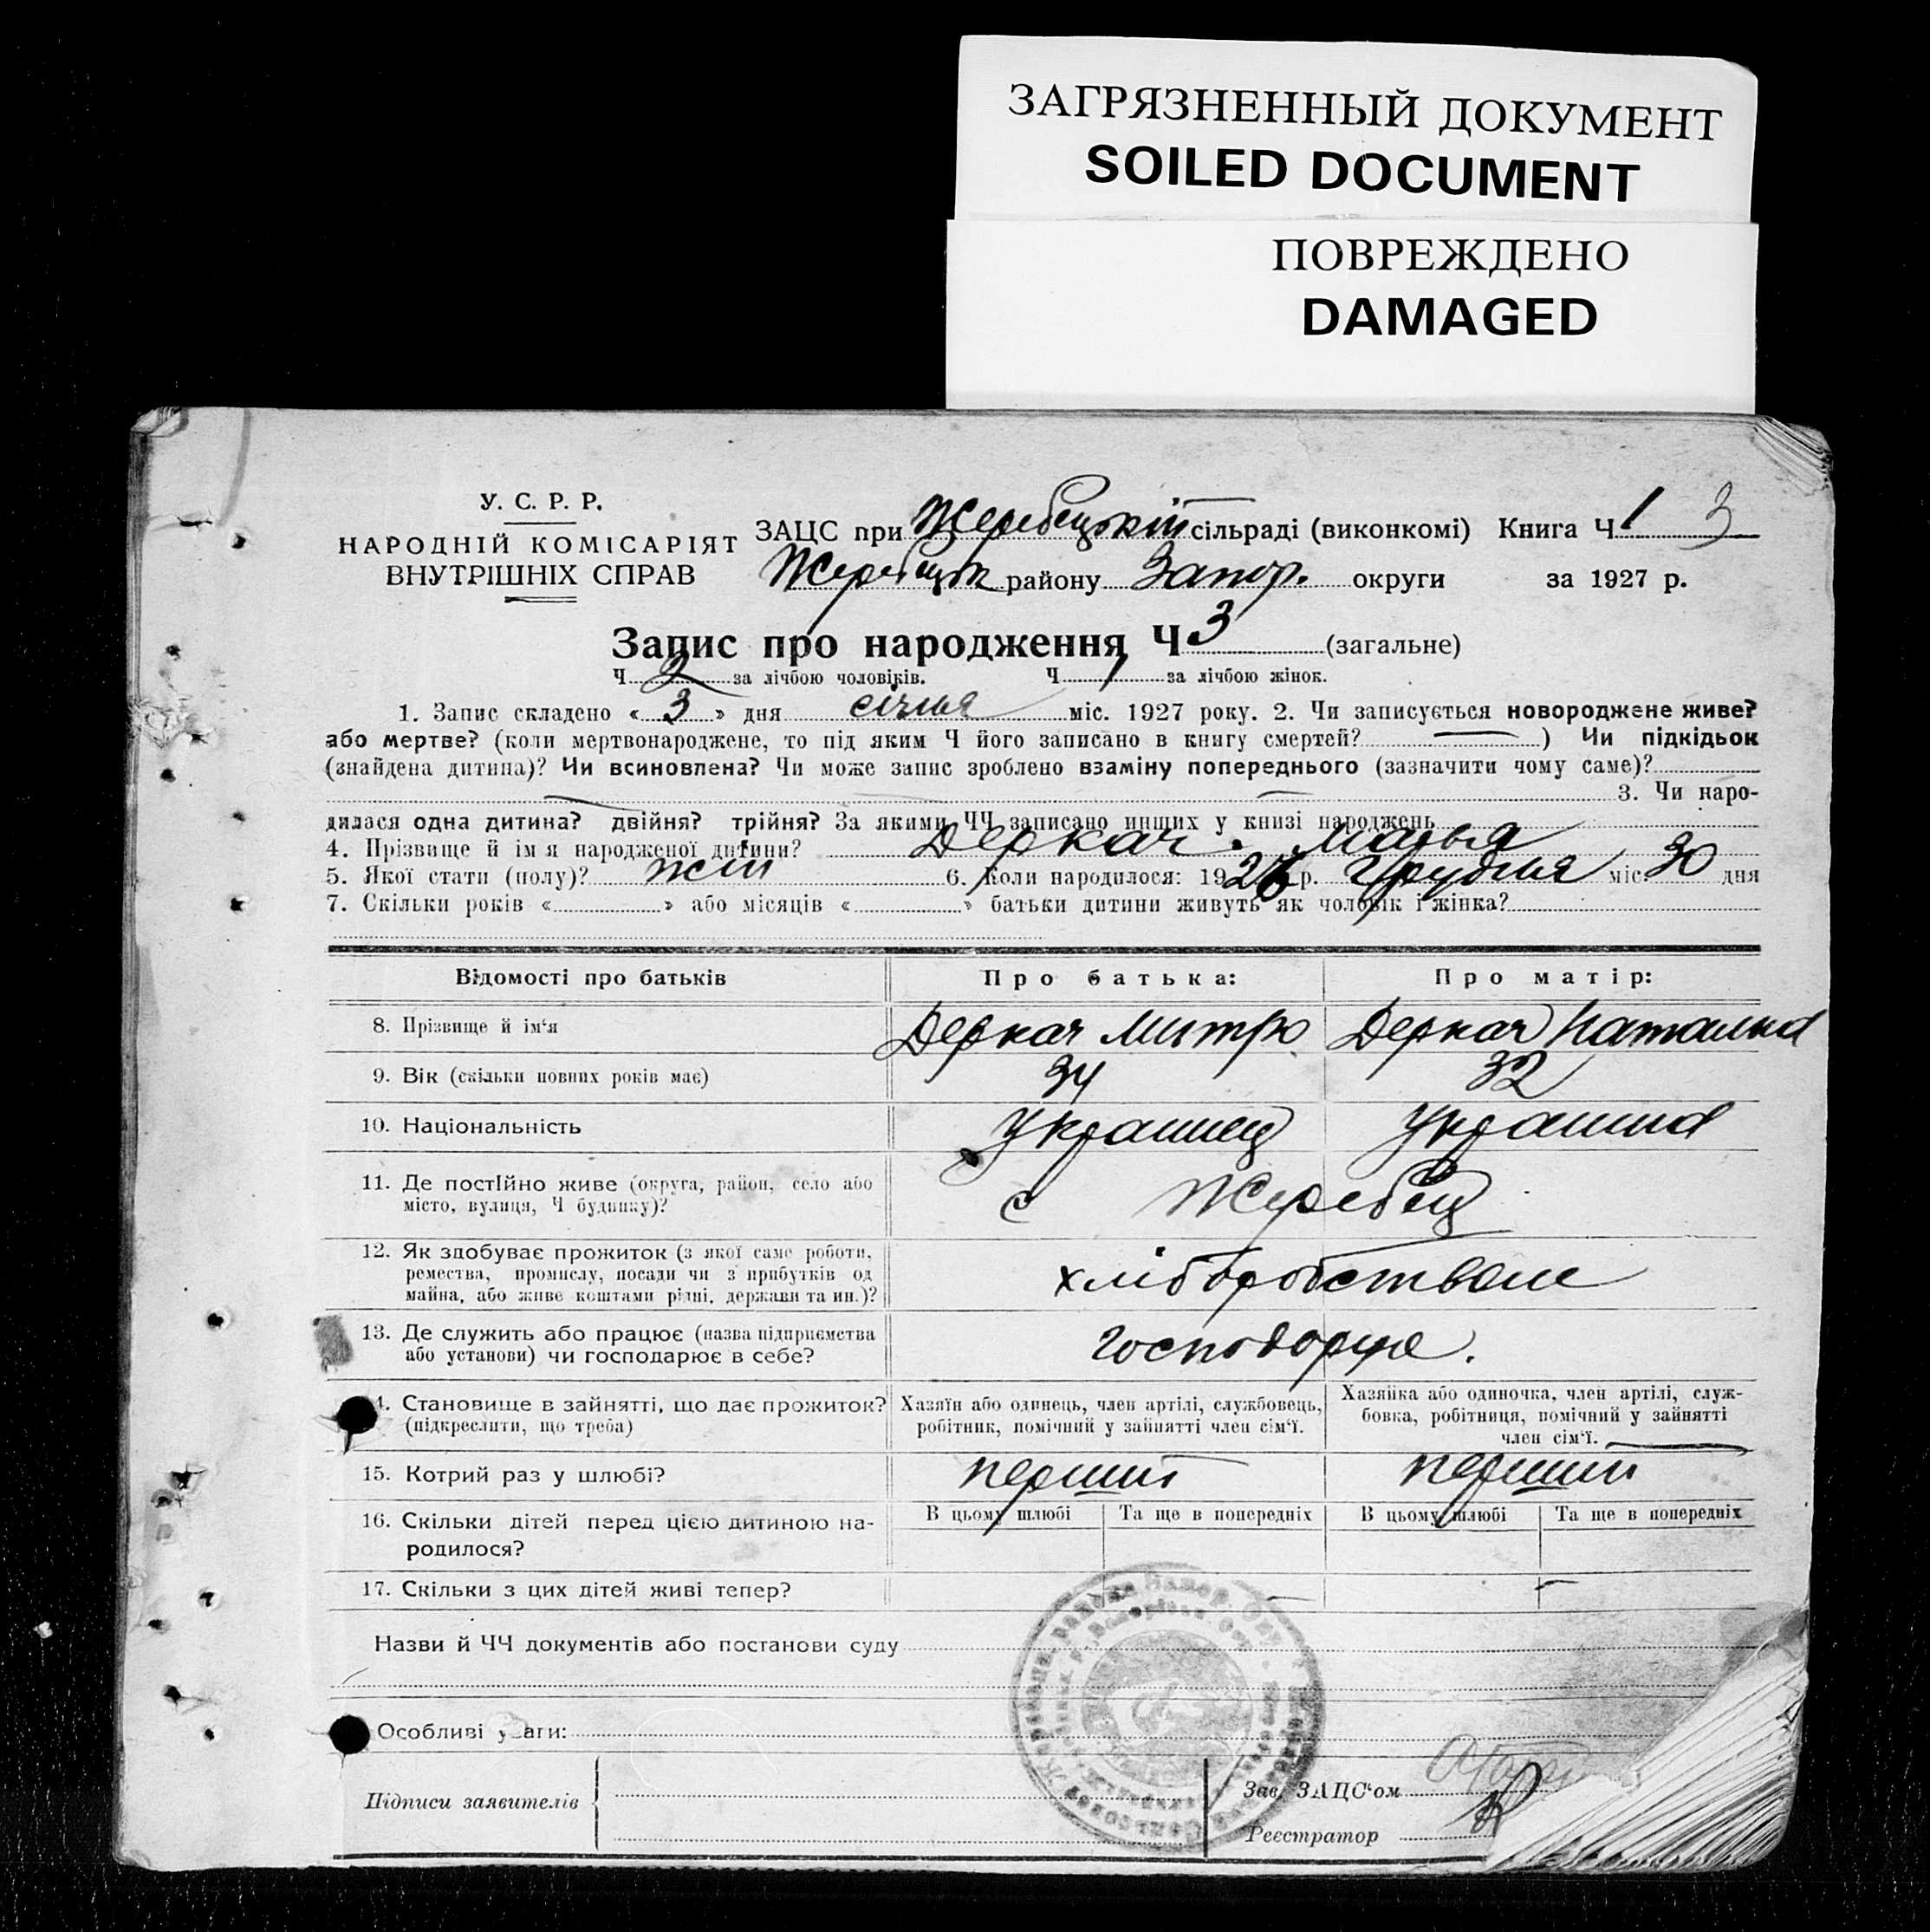 ЗАГРЯЗНЕННЫЙ ДОКУМЕНТ
SOILED DOCUMENT
ПОВРЕЖДЕНО
DAMAGED
У. С. Р. Р.
НАРОДНІЙ КОМІСАРІЯТ
ВНУТРІШНІХ СПРАВ
ЗАЦС при Жеребецькій сільраді (виконкомі) Книга Ч 1 3
Жеребецьк району Запор. округи за 1927 р.
Запис про народження Ч 3 (загальне)
Ч 2 за лічбою чоловіків. Ч 1 за лічбою жінок.
1. Запис складено « 3 » дня січня міс. 1927 року. 2. Чи записується новороджене живе?
або мертве? (коли мертвонароджене, то під яким Ч його записано в книгу смертей? — ) Чи підкідьок
(знайдена дитина)? Чи всиновлена? Чи може запис зроблено взаміну попереднього (зазначити чому саме)?
3. Чи наро-
дилася одна дитина? двійня? трійня? За якими ЧЧ записано инших у книзі народжень
4. Прізвище й імя народженої дитини? Деркач Марья
5. Якої стати (полу)? жін 6. Коли народилося: 1926 р. Грудня міс. 30 дня
7. Скільки років « » або місяців « » батьки дитини живуть як чоловік і жінка?
Відомості про батьків Про батька: Про матір:
8. Прізвище й ім'я Деркач Митро Деркач Наталка
9. Вік (скільки повних років має) 34 32
10. Національність Украинец Украинка
11. Де постІйно живе (округа, район, село або
місто, вулиця, Ч будинку)? с Жеребец
12. Як здобуває прожиток (з якої саме роботи,
ремества, промислу, посади чи з прибутків од
майна, або живе коштами рідні, держави та ин.)? хліборобством
13. Де служить або працює (назва підприємства
або установи) чи господарює в себе? господорує.
4. Становище в зайнятті, що дає прожиток?
(підкреслити, що треба)
Хазяїн або одинець, член артілі, службовець,
робітник, помічний у зайнятті член сім'ї.
Хазяйка або одиночка, член артілі, служ-
бовка, робітниця, помічний у зайнятті
член сім'ї.
15. Котрий раз у шлюбі? перший перший
16. Скільки дітей перед цією дитиною на-
родилося?
В цьому шлюбі Та ще в попередніх В цьому шлюбі Та ще в попередніх
17. Скільки з цих дітей живі тепер?
Назви й ЧЧ документів або постанови суду
Особливі уваги:
Підписи заявителів
Зав. ЗАЦС'ом
Реєстратор